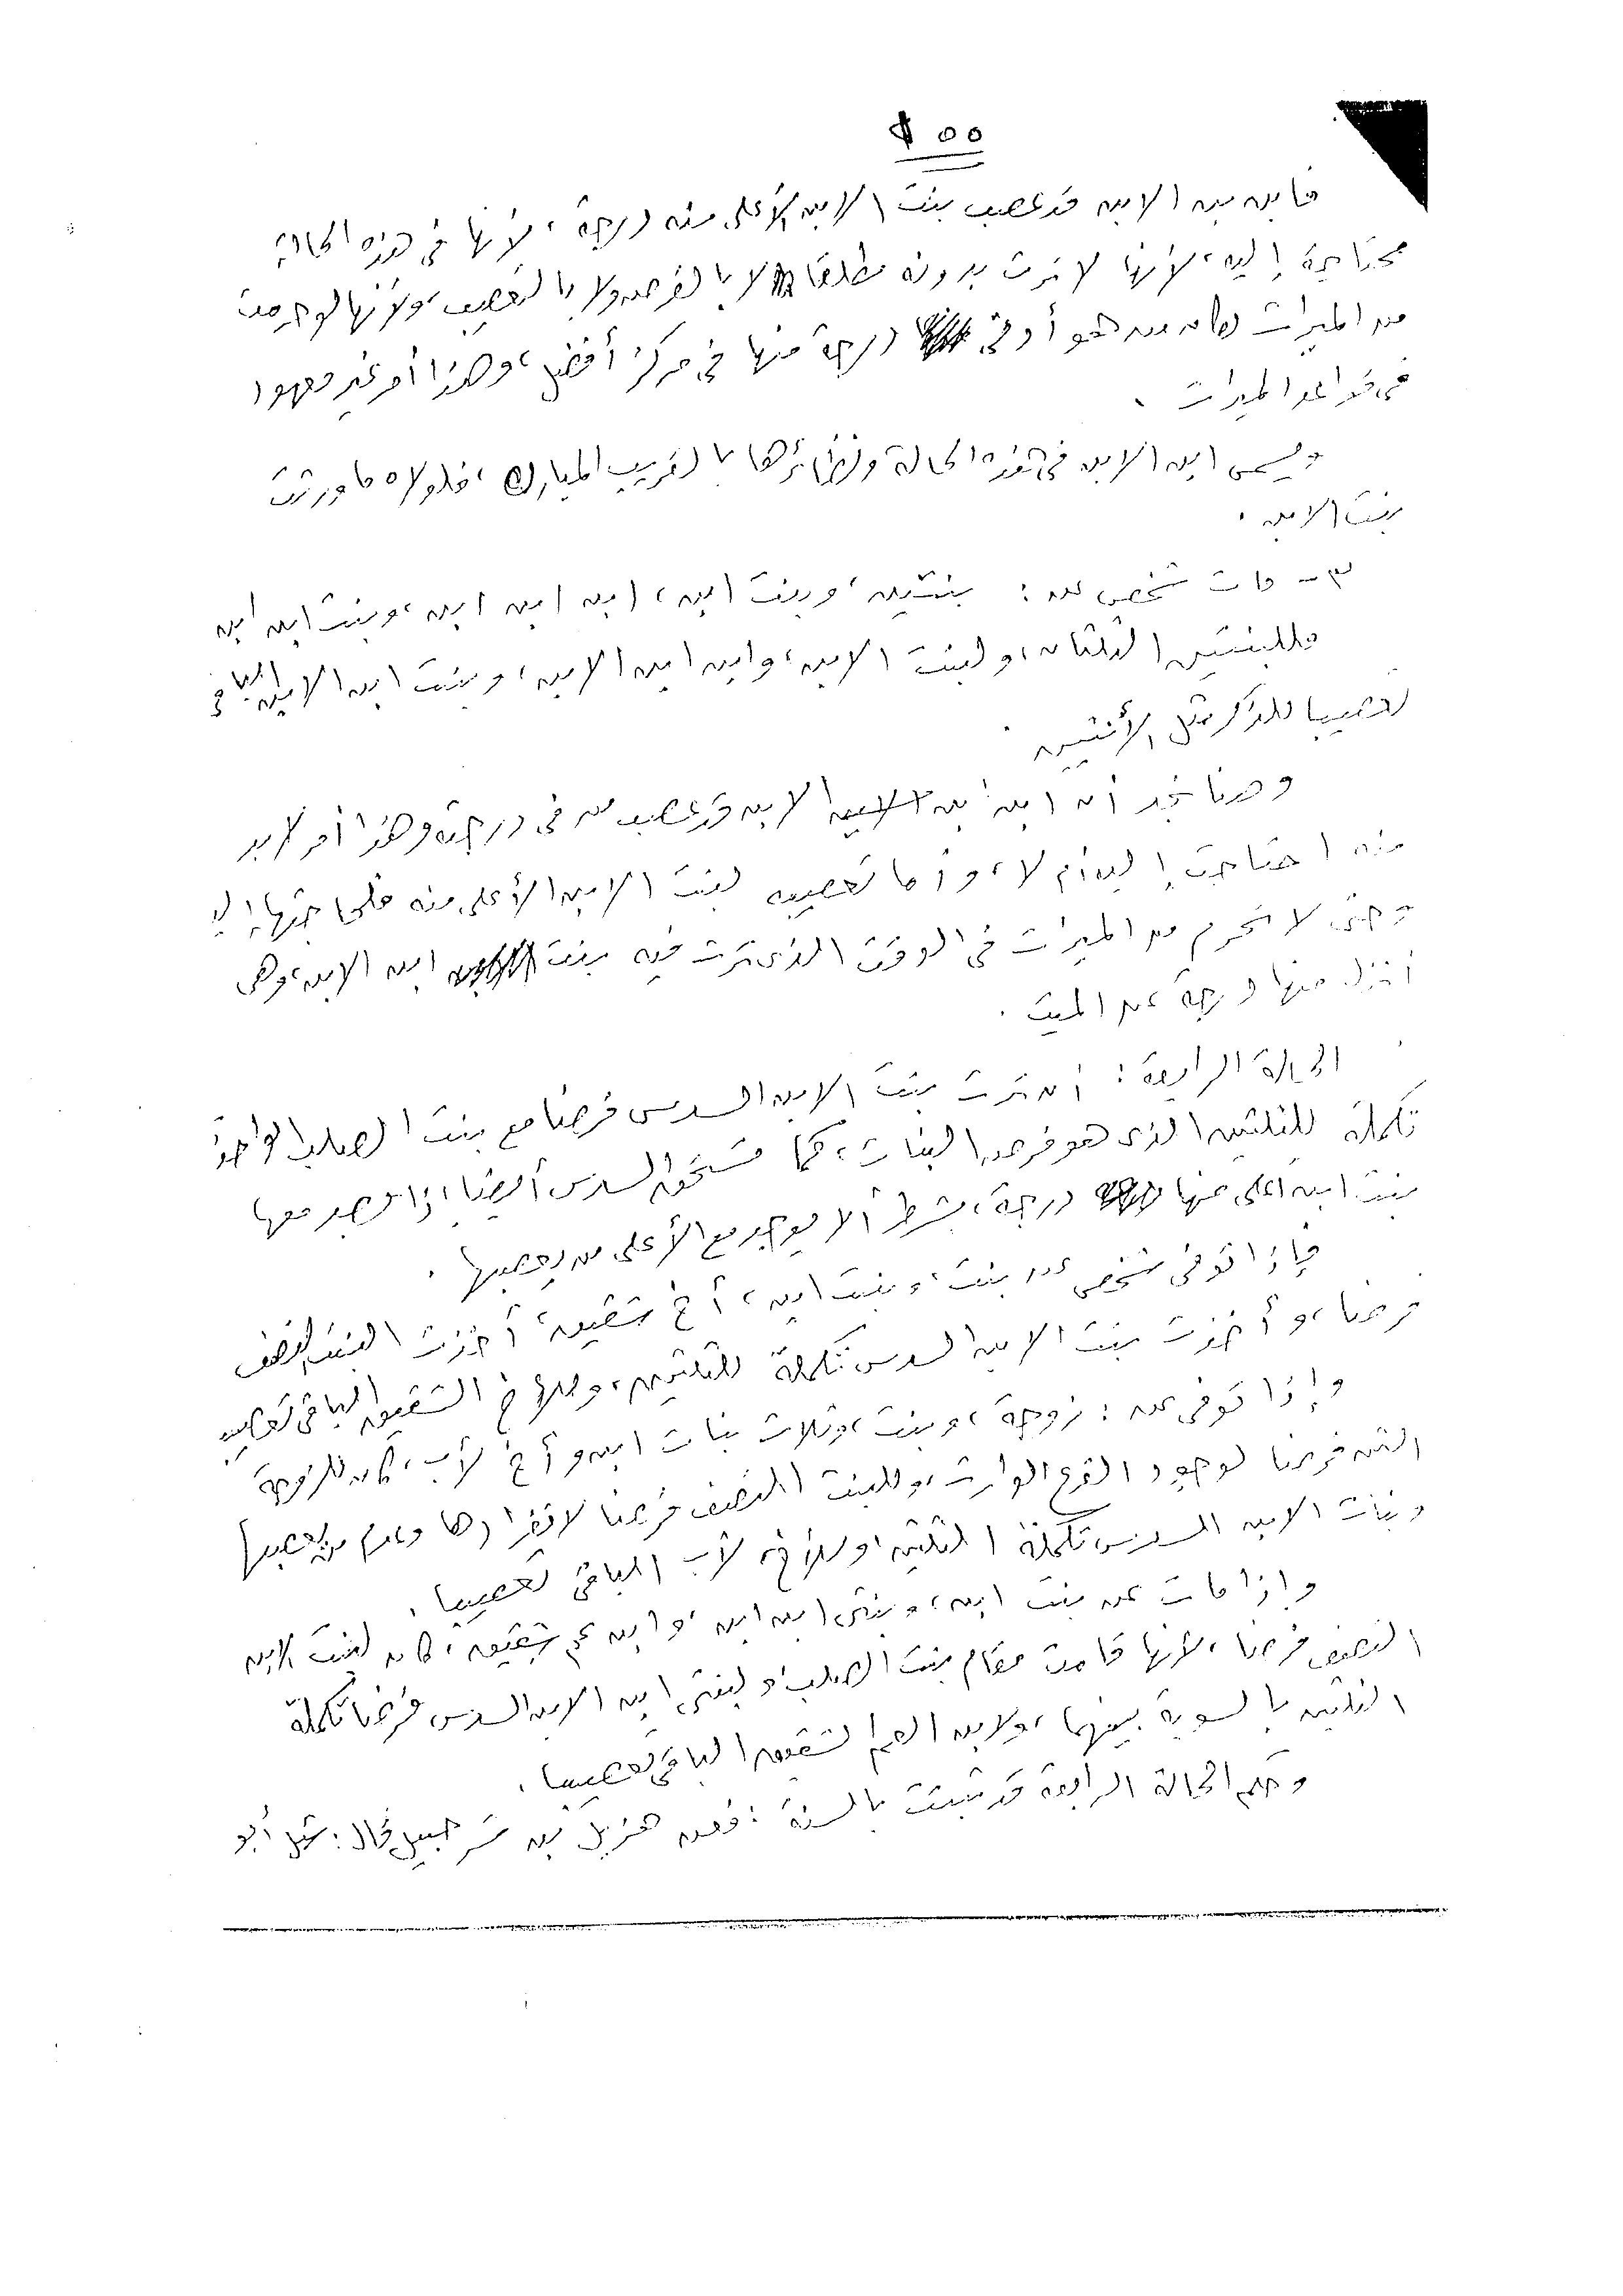 ٥٥
فابن ابن الابن قد عصب بنت الابن الأعلى منه درجة، لأنها فى هذه الحالة
محتاجة إليه، لأنها لا ترث بدونه مطلقا لا بالفرض ولا بالتعصيب، ولأنها لو حرمت
من الميراث لكان من هو أدنى درجة منها فى مركز أفضل، وهذا أمر غير معهود
فى قواعد الميراث .
ويسمى ابن الابن فى هذه الحالة ونظائرها بالقريب المبارك، فلولاه ما ورثت
بنت الابن .
٣ - مات شخص عن : بنتين، وبنت ابن، ابن ابن ابن، وبنت ابن ابن
فللبنتين الثلثان، ولبنت الابن، وابن ابن الابن، وبنت ابن الابن الباقى
تعصيبا للذكر مثل الأنثيين .
وهنا نجد أن ابن ابن الابن قد عصب من فى درجته وهذا أمر لابد
منه احتاجت إليه أم لا، وأما تعصيبه لبنت الابن الأعلى منه فلحاجتها إليه
وحتى لا تحرم من الميراث فى الوقت الذى ترث فيه بنت ابن الابن، وهى
أنزل منها درجة عن الميت .
الحالة الرابعة : أن ترث بنت الابن السدس فرضا مع بنت الصلب الواحدة
تكملة للثلثين الذى هو فرض البنات، كما تستحق السدس أيضا إذا وجد معها
بنت ابن أعلى منها درجة، بشرط ألا يوجد مع الأعلى من يعصبها .
فإذا توفى شخص عن بنت، وبنت ابن، أخ شقيق، أخذت البنت النصف
فرضا، وأخذت بنت الابن السدس تكملة للثلثين، وللأخ الشقيق الباقى تعصيبا
وإذا توفى عن : زوجة، وبنت، وثلاث بنات ابن وأخ لأب، كان للزوجة
الثمن فرضا لوجود الفرع الوارث، وللبنت النصف فرضا لانفرادها وعدم من يعصبها
وبنات الابن السدس تكملة الثلثين، وللأخ لأب الباقى تعصيبا .
وإذا مات عن بنت ابن، وبنتى ابن ابن، وابن عم شقيق، كان لبنت الابن
النصف فرضا، لأنها قامت مقام بنت الصلب، ولبنتى ابن الابن السدس فرضا تكملة
الثلثين بالسوية بينهما، ولابن العم الشقيق الباقى تعصيبا .
وحكم الحالة الرابعة قد ثبت بالسنة : فعن هزيل بن شرحبيل قال : سئل أبو